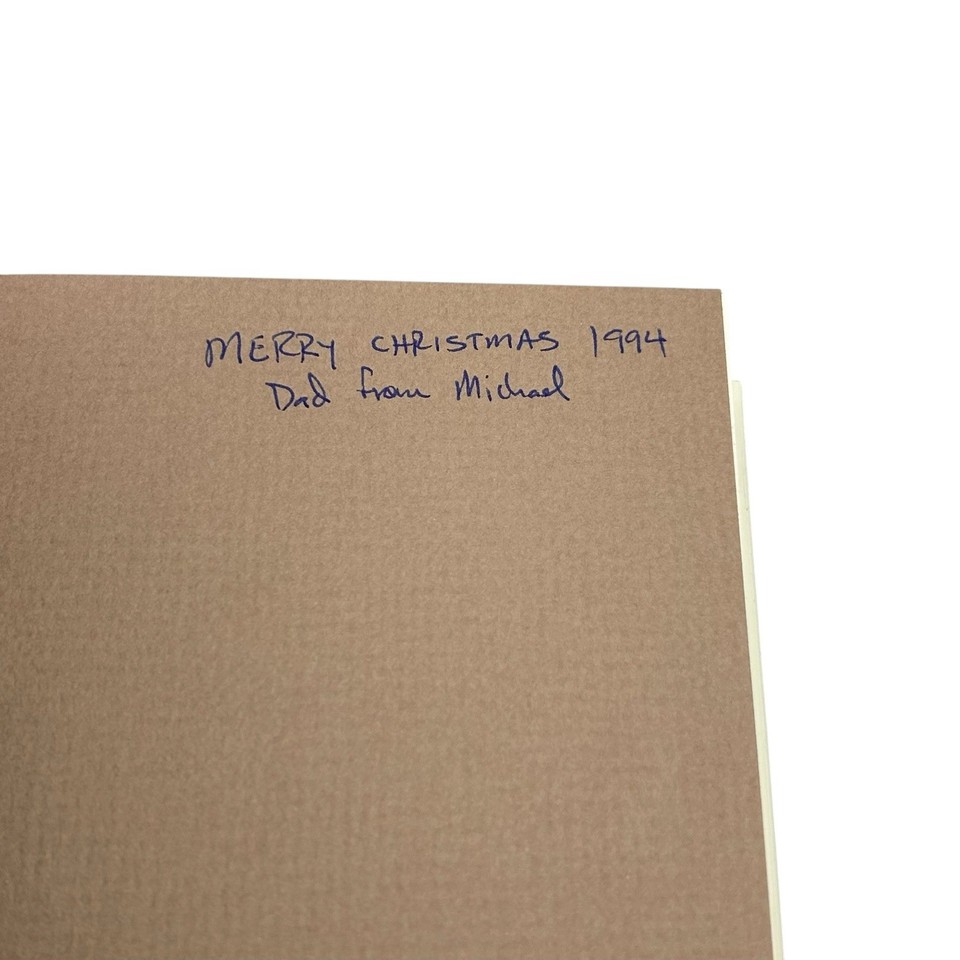 MERRY CHRISTMAS 1994
Dad from Michael